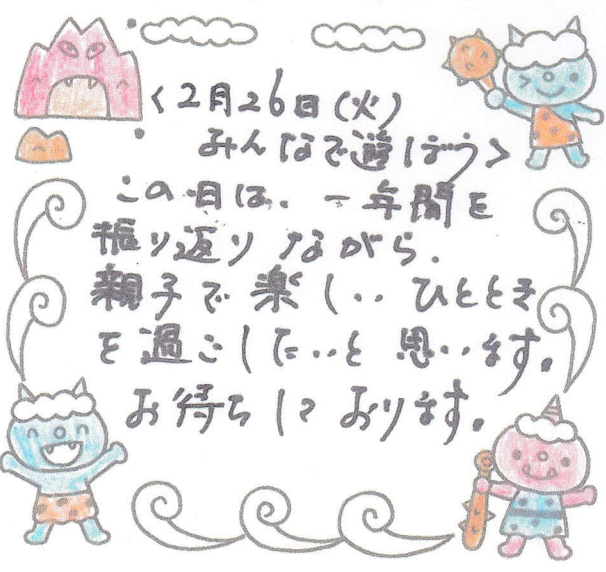 <2月26日(火)
みんなで遊ぼう>
この日は、一年間を
振り返りながら、
親子で楽しいひととき
を過ごしたいと思います。
お待ちしております。